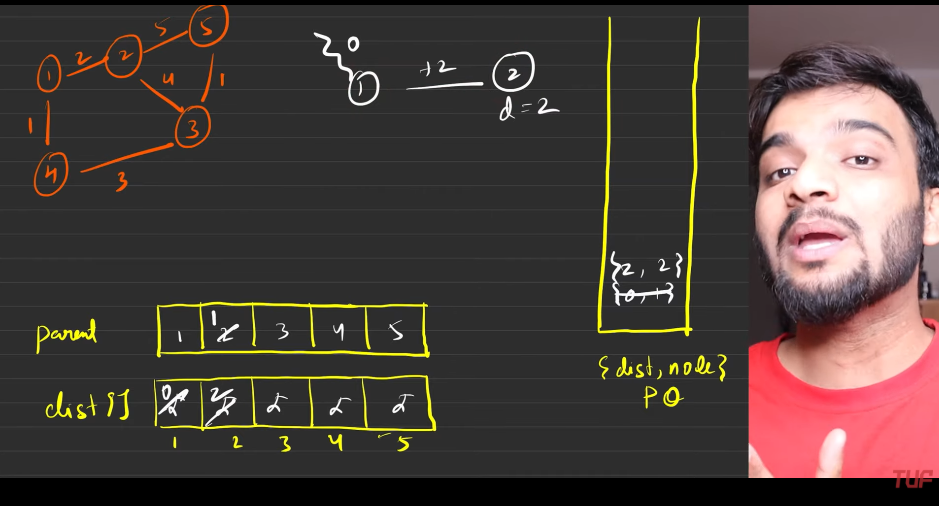 5
1 2 2 5
4 1
1 3
4
3
0
1 +2 2
d = 2
{2, 2}
{0, 1}
{dist, node}
PQ
parent 1 1 2 3 4 5
dist []
0 2
1 2 3 4 5
TUF